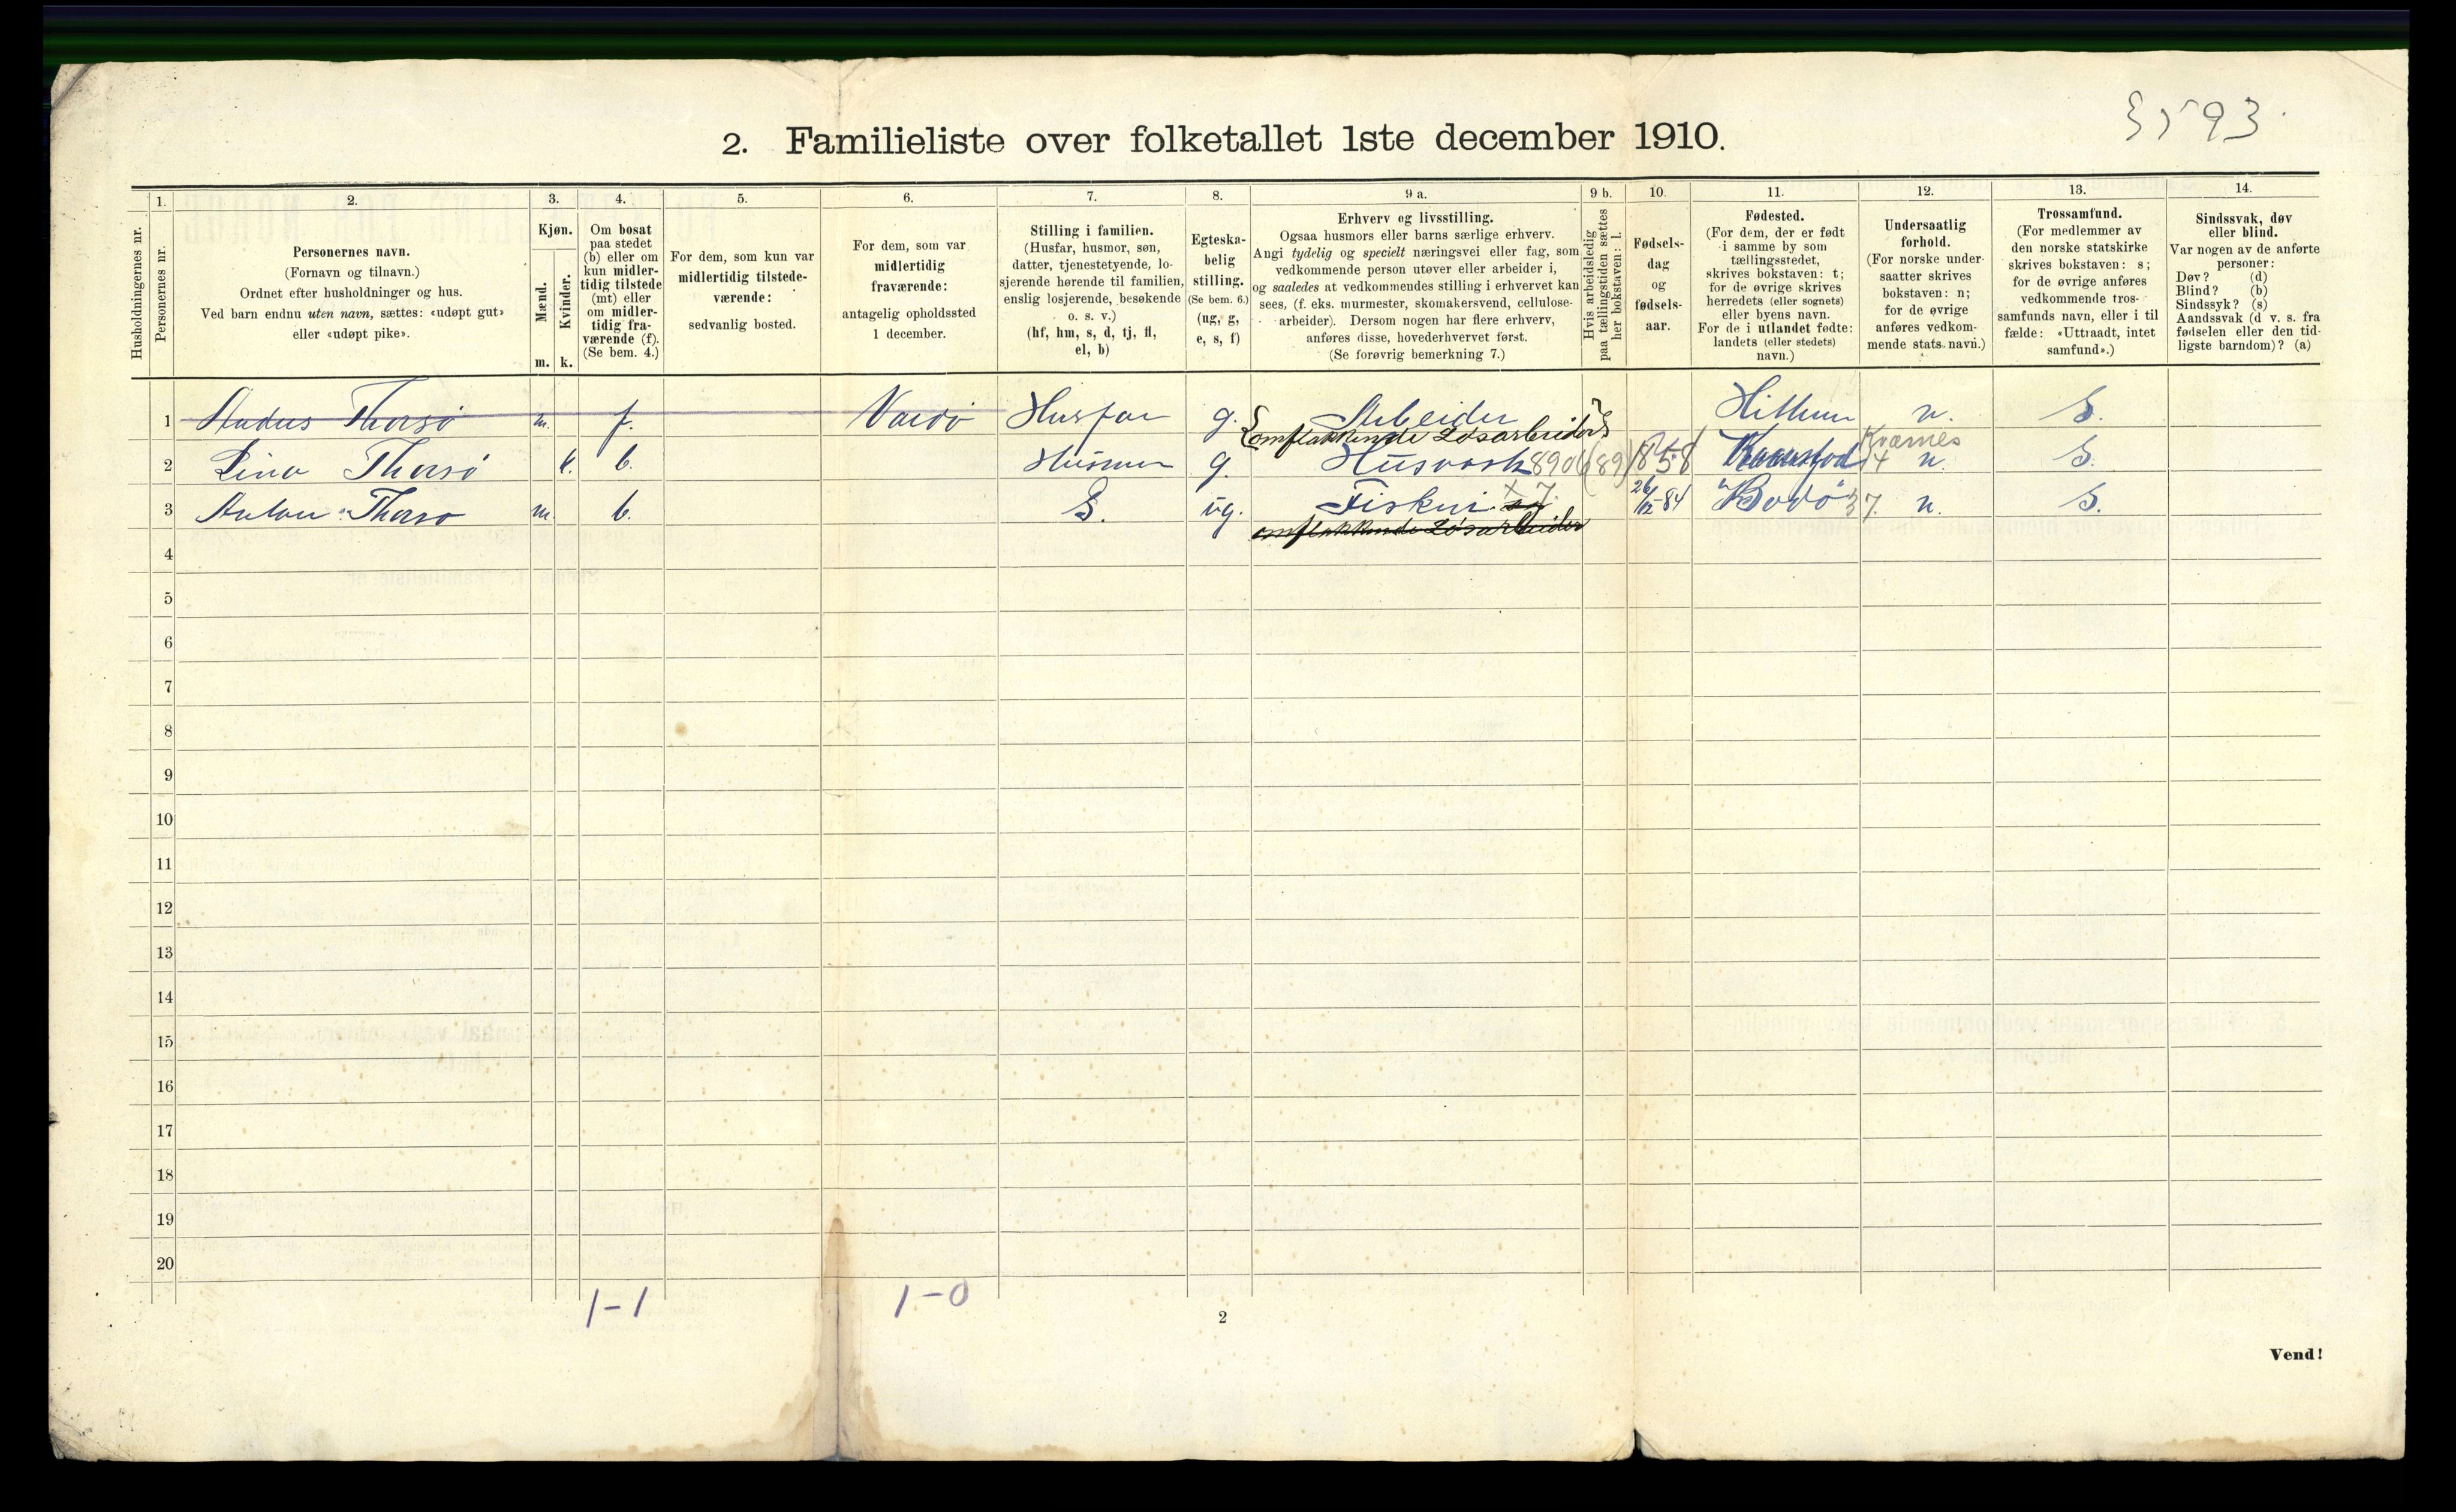 3593.
2. Familieliste over folketallet 1ste december 1910.
1. 2. 3. 4. 5. 6. 7. 8. 9 a. 9 b. 10. 11. 12. 13. 14.
Husholdningernes nr.
Personernes nr.
Personernes navn.
(Fornavn og tilnavn.)
Ordnet efter husholdninger og hus.
Ved barn endnu uten navn, sættes: «udøpt gut»
eller «udøpt pike».
Kjøn.
Mænd.
m.
Kvinder.
k.
Om bosat
paa stedet
(b) eller om
kun midler-
tidig tilstede
(mt) eller
om midler-
tidig fra-
værende (f).
(Se bem. 4.)
For dem, som kun var
midlertidig tilstede-
værende:
sedvanlig bosted.
For dem, som var
midlertidig
fraværende:
antagelig opholdssted
1 december.
Stilling i familien.
(Husfar, husmor, søn,
datter, tjenestetyende, lo-
sjerende hørende til familien,
enslig losjerende, besøkende
o. s. v.)
(hf, hm, s, d, tj, fl,
el, b)
Egteska-
belig
stilling.
(Se bem. 6.)
(ug, g,
e, s, f)
Erhverv og livsstilling.
Ogsaa husmors eller barns særlige erhverv.
Angi tydelig og specielt næringsvei eller fag, som
vedkommende person utøver eller arbeider i,
og saaledes at vedkommendes stilling i erhvervet kan
sees, (f. eks. murmester, skomakersvend, cellulose-
arbeider). Dersom nogen har flere erhverv,
anføres disse, hovederhvervet først.
(Se forøvrig bemerkning 7.)
Hvis arbeidsledig
paa tællingstiden sættes
her bokstaven: l.
Fødsels-
dag
og
fødsels-
aar.
Fødested.
(For dem, der er født
i samme by som
tællingsstedet,
skrives bokstaven: t;
for de øvrige skrives
herredets (eller sognets)
eller byens navn.
For de i utlandet fødte:
landets (eller stedets)
navn.)
Undersaatlig
forhold.
(For norske under-
saatter skrives
bokstaven: n;
for de øvrige
anføres vedkom-
mende stats navn.)
Trossamfund.
(For medlemmer av
den norske statskirke
skrives bokstaven: s;
for de øvrige anføres
vedkommende tros-
samfunds navn, eller i til
fælde: «Uttraadt, intet
samfund».)
Sindssvak, døv
eller blind.
Var nogen av de anførte
personer:
Døv? (d)
Blind? (b)
Sindssyk? (s)
Aandssvak (d v. s. fra
fødselen eller den tid-
ligste barndom)? (a)
1 Thorsø m. f. Vardø Husfar g. Arbeider n. S.
omflakkende Løsarbeider
Kværnes
2 Lina Thorsø k. b. Husmor g. Husvask 890 (89) 1858 14 n. S.
3 Anton Thorsø m. b. S. ug. Fisker 26/12-84 "Bodø" 37. n. S.
omflakkende Løsarbeider
4
5
6
7
8
9
10
11
12
13
14
15
16
17
18
19
20
1-1 1-0
2
Vend!